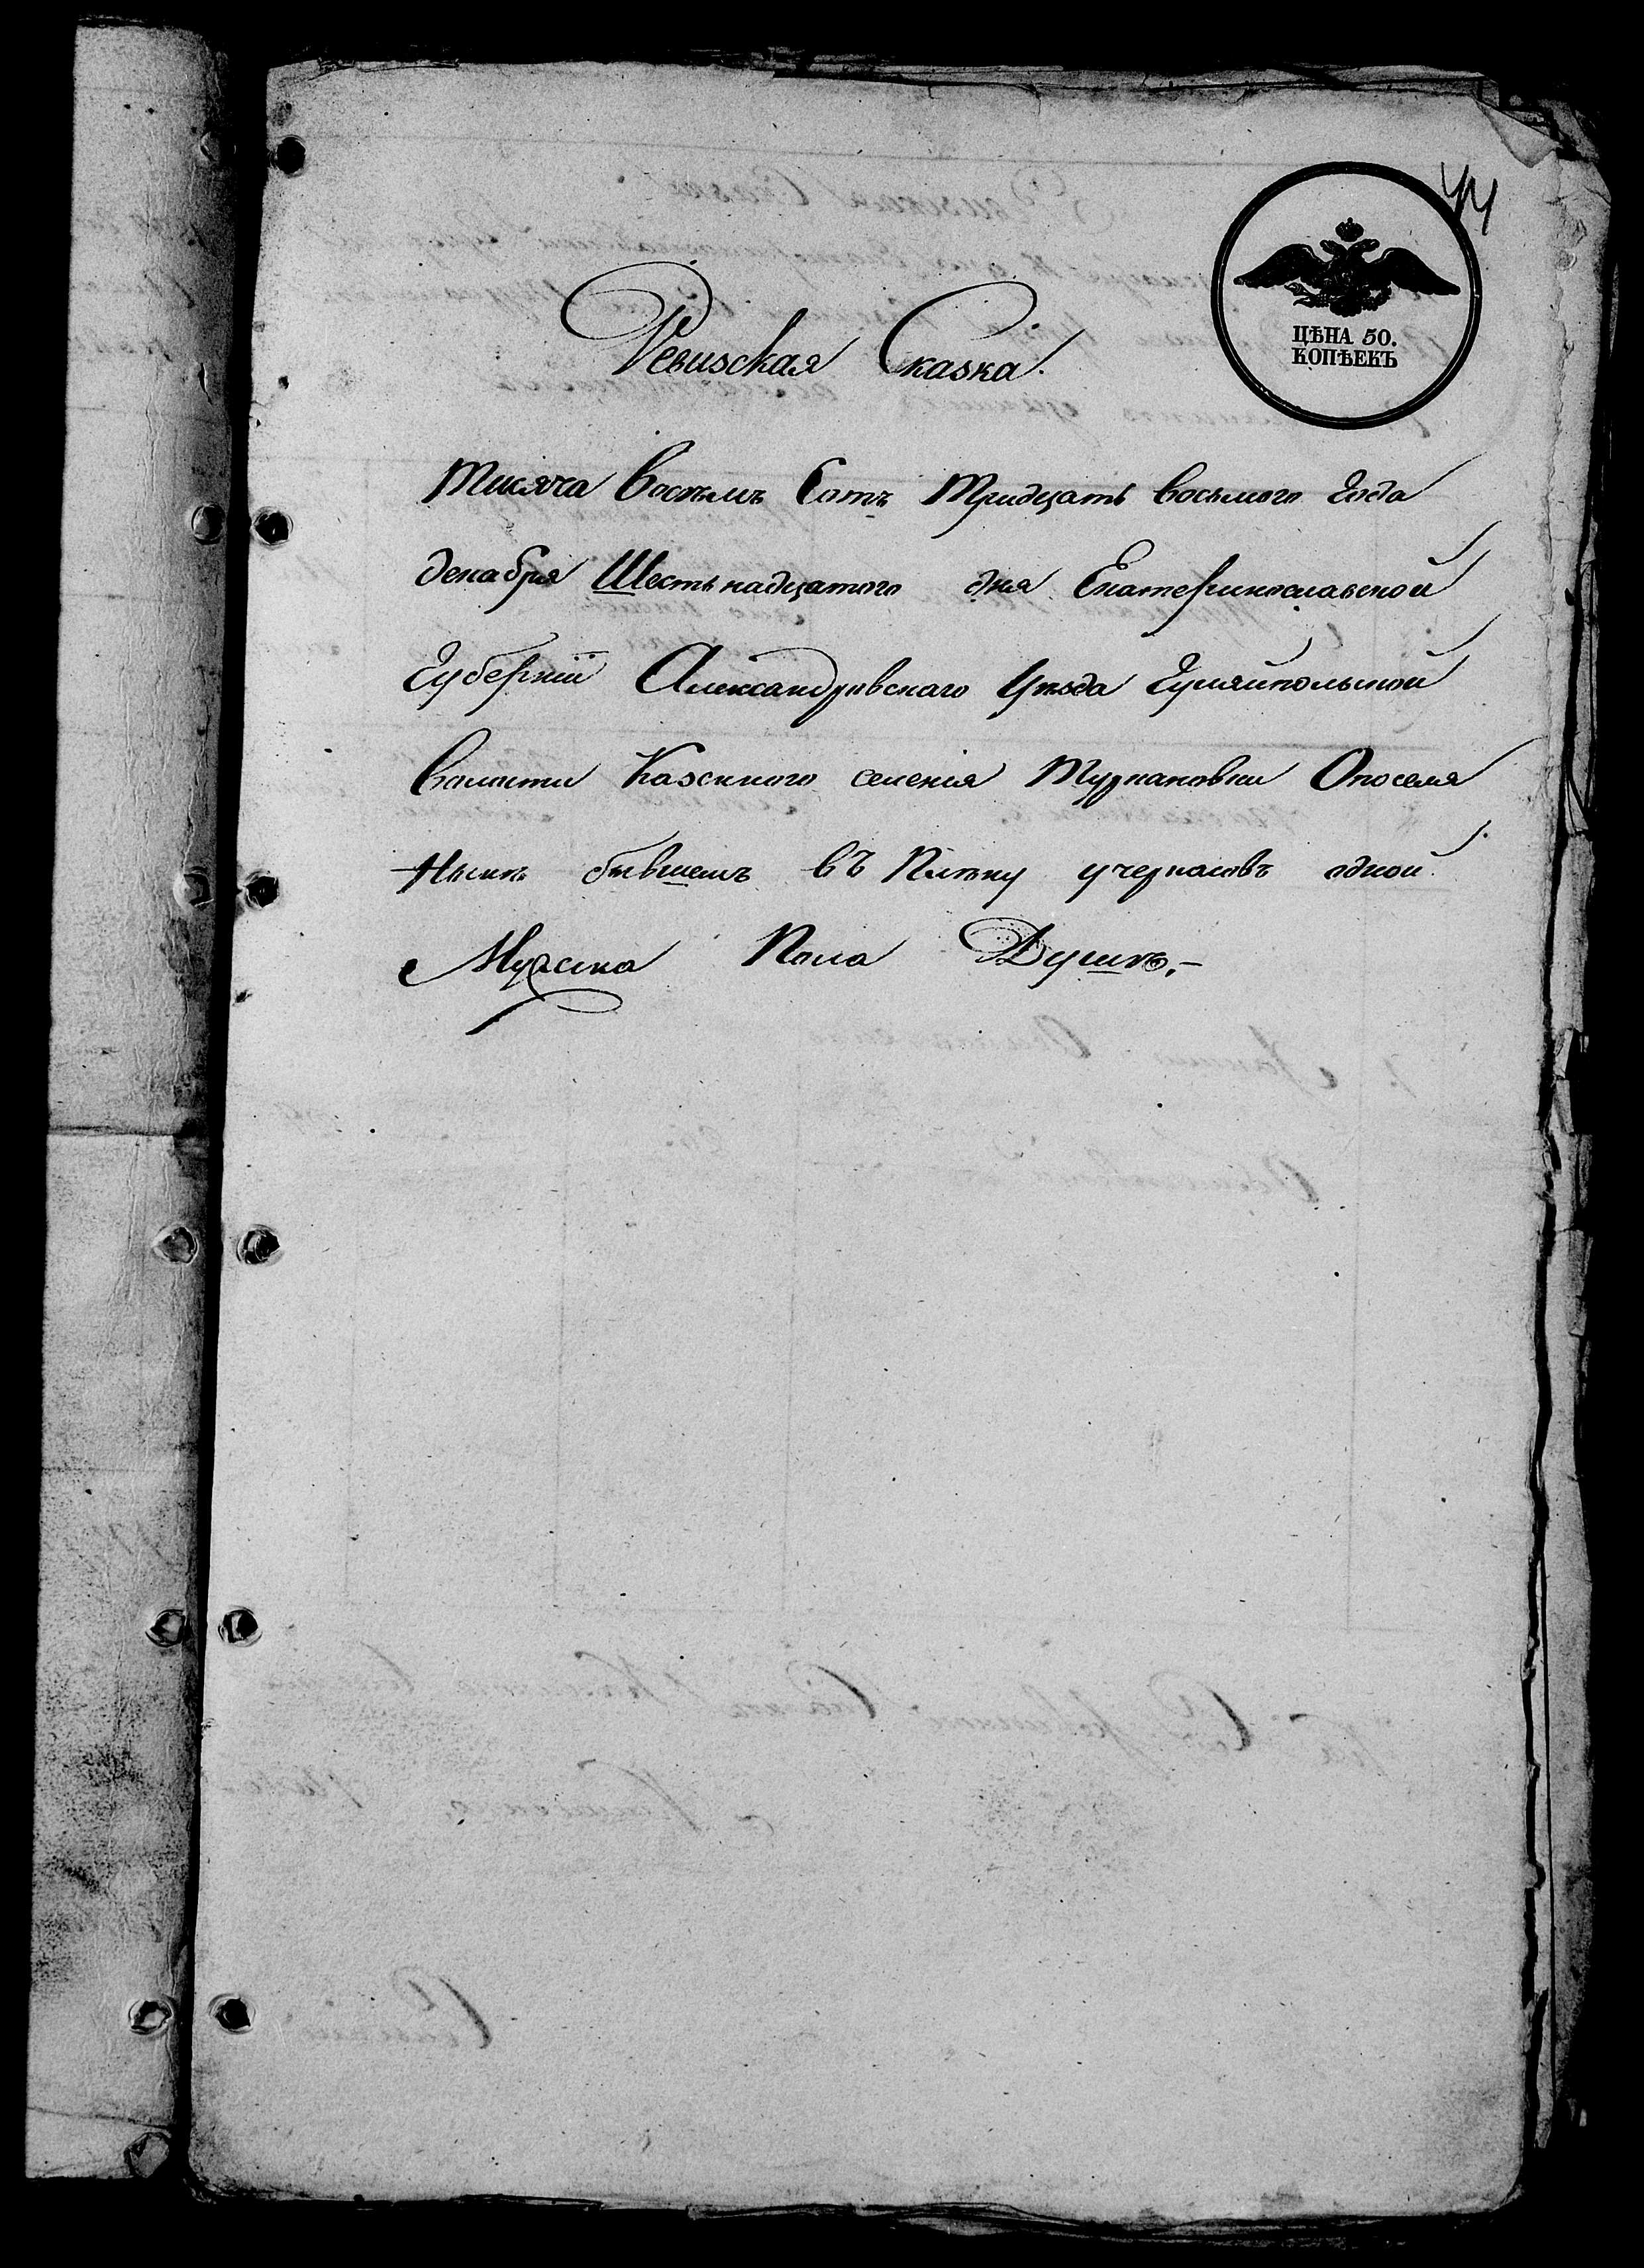 44
ЦѢНА 50.
КОПѢЕКЪ
Ревизская Сказка.
Тисяча Восемъ Сотъ Тридцать восьмого года
декабря Шестьнадцатого дня Екатеринославской
Губернiи Александровскаго Уѣзда Гуляйпольской
Волости Казенного селенiя Туркановки
бывшемъ въ Плѣну учеркасовъ одной
Мужска Пола Душѣ,-